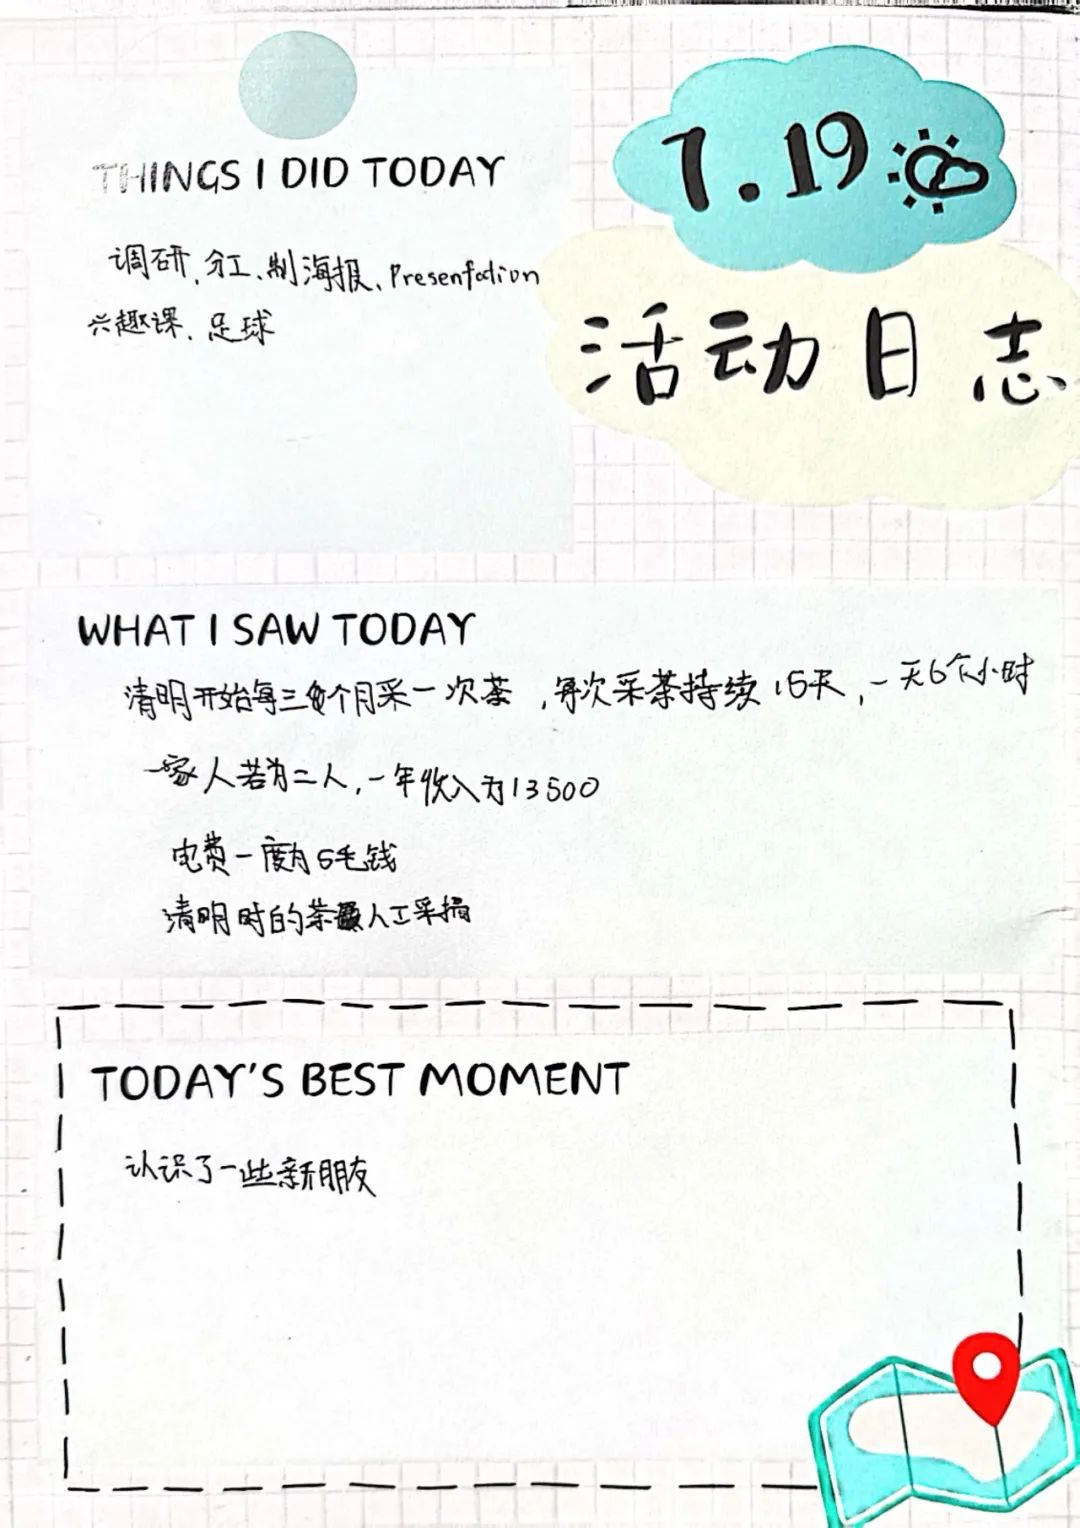 7.19
活动日志
THINGS I DID TODAY
调研、分工、制海报、Presentation
兴趣课、足球
WHAT I SAW TODAY
清明开始每三个月采一次茶，每次采茶持续15天，一天6个小时
一家人若为二人，一年收入为13500
电费一度为5毛钱
清明时的茶最人工采摘
TODAY'S BEST MOMENT
认识了一些新朋友